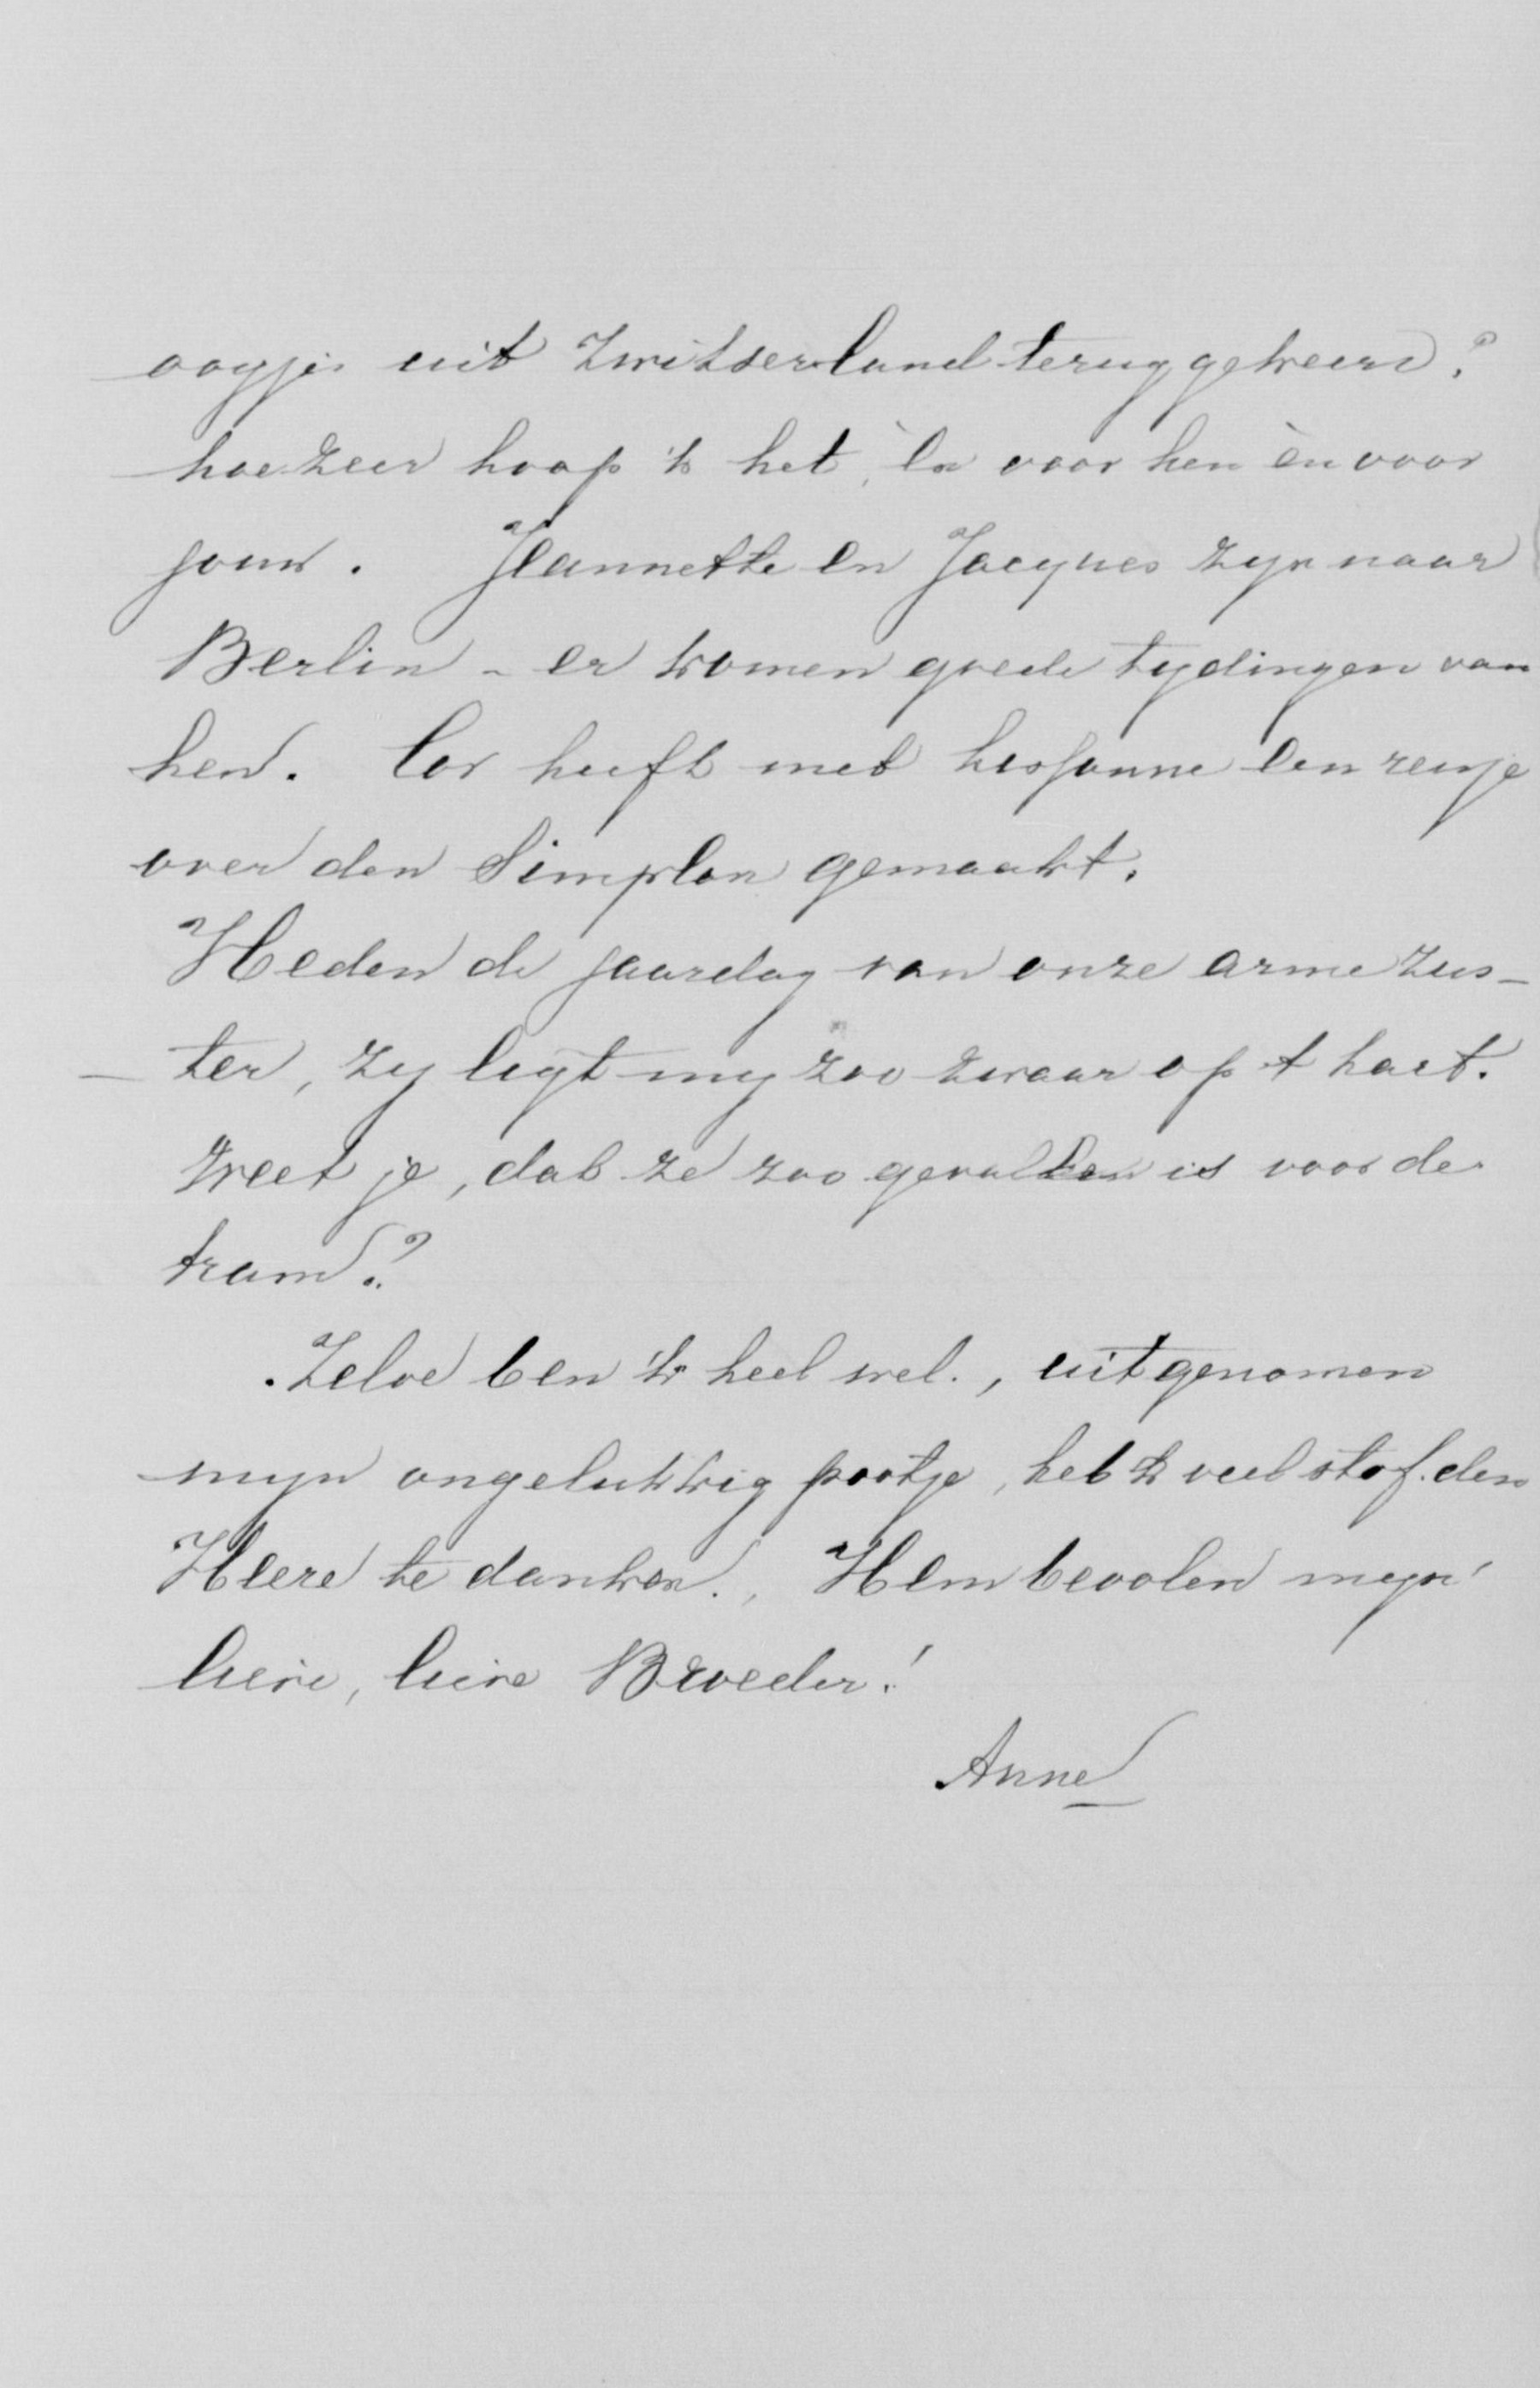 oogjes uit Zwitserland teruggekeerd?
hoezeer hoop 'k het, èn voor hen èn voor
jouw. Jeannette en Jacques zyn naar
Berlin - er komen goede tydingen van
hen. Cor heeft met een reisje
over den Simplon gemaakt.
Heden de jaardag van onze arme zus-
- ter, zy ligt my zoo zwaar op 't hart.
Weet je, dat ze zoo gevallen is voor de
tram?
Zelve ben 'k heel wel., uitgenomen
myn ongelukkig pootje, heb 'k veel stof den
Heere te danken. Hem bevolen myn
lieve, lieve Broeder!
Anne